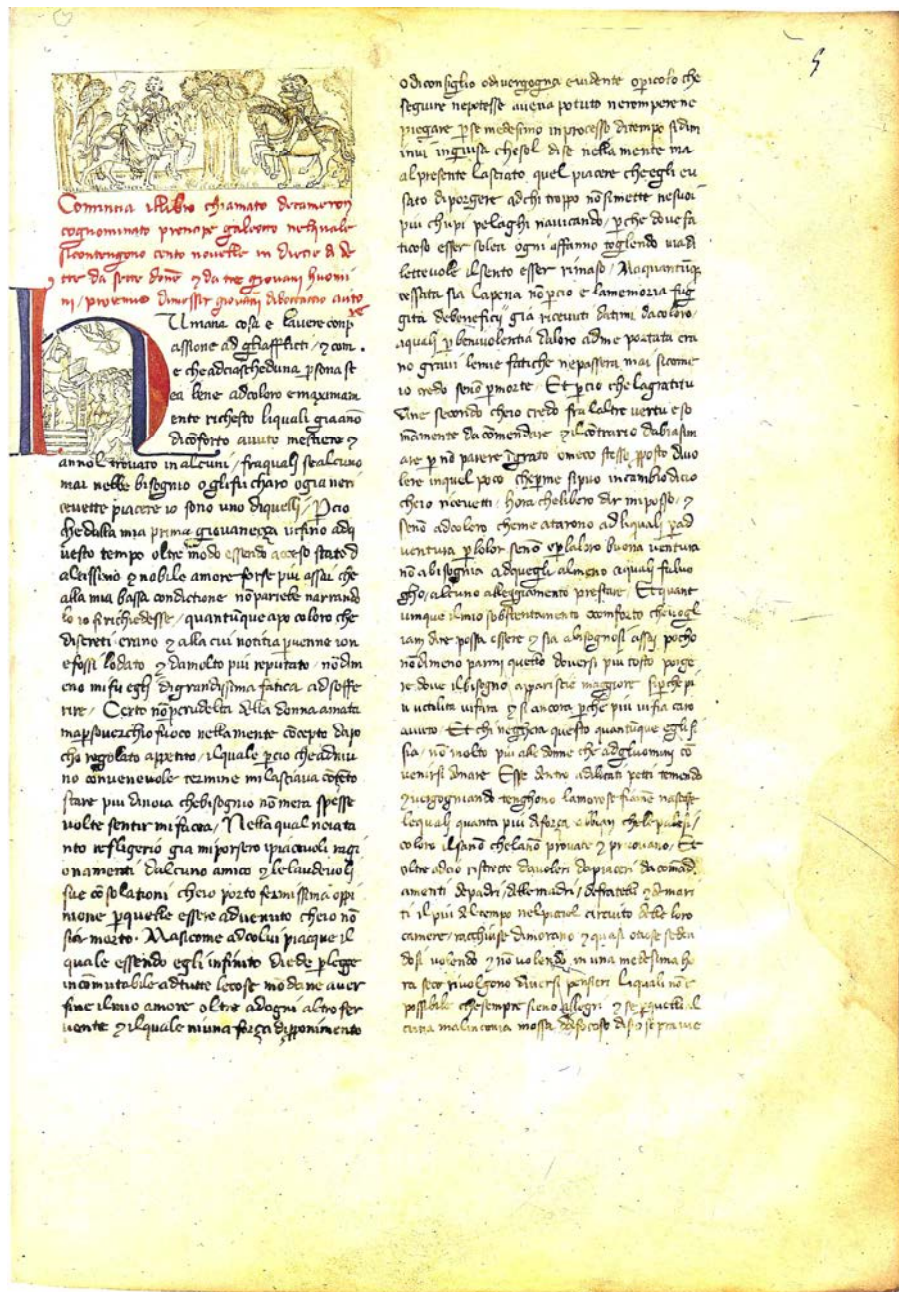 5
Comincia illibro chiamato decameron
cognominato prencipe galeotto nelquale
sicontengono cento novelle in diecie di de
tte da sette donē ⁊ da tre giovani huomi
ni / proemio dimesser giovāni diboccaccio auto
re
Umana cosa e lavere conp
assione ad gliafflicti / ⁊ com
e che adciascheduna psona st
ea bene adcoloro e maximam
ente richesto liquali gia anō
dicōforto avuto mestiere ⁊
annol trovato in alcuni / fraquali se alcuno
mai nebbe bisognio o glifu charo o gia neri
cevette piacere io sono uno diquelli / Pcio
che dalla mia prima giovanezza infino adq
uesto tempo oltre modo essendo acceso stato d
altissimo ⁊ nobile amore forse piu assai che
alla mia bassa condictione nō parebbe narrando
lo io sirichiedesse / quantūque apo coloro che
discreti erano ⁊ alla cui notitia pvenne ion
e fossi lodato ⁊ damolto piu reputato / nōdim
eno mi fu egli digrandissima fatica ad soffe
rire / Certo nō pcrudelta della donna amata
ma psoverchio fuoco nella mente cōcepto dapo
cho regolato appetito / ilquale pcio che adniu
no convenevole termine mi lasciava cōtēto
stare piu dinoia chebisognio nō mera spesse
volte sentir mi facea / Nella qual noia ta
nto refligerio gia mi porsero ipiacevoli ragi
onamenti dalcuno amico ⁊ le laudevoli
sue cōsolationi cheio porto fermissima oppi
nione pquelle essere advenuto cheio nō
sia morto . Masicome adcolui piacque il
quale essendo egli infinito diede plegge
incōmutabile adtutte lecose mōdane aver
fine il mio amore oltre adogni altro fer
vente ⁊ ilquale niuna força diproponimento
o diconsiglio o divergogna evidente o picolo che
seguire nepotesse aveva potuto ne rompere ne
piegare pse medesimo in processo ditempo sidim
inui in guisa che sol di se nella mente ma
al presente lasciato quel piacere che egli eu
sato diporgere adchi troppo nō simette ne suoi
piu chupi pelaghi navicando / pche dove fa
ticoso esser solea ogni affanno togliendo via d
ilettevole il sento esser rimaso / Maquantūq
cessata sia lapena nō pcio e lamemoria fug
gita debeneficii gia ricevuti datimi da coloro /
aquali pbenivolentia daloro adme portata era
no gravi lemie fatiche ne passera mai sicome
io credo senō pmorte / Et pcio che lagratitu
dine secondo cheio credo fra laltre vertu e so
mamente da cōmendare ⁊ il cōtrario dabiasim
are p nō parere ingrato o meco stesso pposto di vo
lere inquel poco che p me sipuo incambio dicio
cheio ricevetti / hora che libero dir mi posso / ⁊
senō adcoloro cheme atarono ad liquali pad
ventura plolor senō o plaloro buona ventura
nō abisognia adquegli almeno aquali fa luo
gho / alcuno alleggiamento prestare / Et quant
unque il mio sobstentamento o conforto che vogl
iam dire possa essere ⁊ sia abisognosi assai pocho
nō dimeno parmi quello doversi piu tosto porge
re dove il bisogno apparisce maggiore si pche pi
u utilita vi fara ⁊ si ancora pche piu vi fia caro
avuto / Et chi neghera questo quantūque egli si
sia / nō molto piu alle donne che adgluomini cō
venirsi donare Esse dentro adilicati petti temendo
⁊ vergogniando tenghono lamorose fiamē nascose
lequali quanta piu diforça abbian chele palesi /
coloro il sanō chelanō provate ⁊ pruovano / Et
oltre adcio ristrecte davoleri dapiaceri dacomād
amenti depadri / delle madri / defratelli ⁊ demari
ti il piu del tempo nel picciol circuito delle loro
camere / racchiuse dimorano ⁊ quasi otiose sedēn
dosi volendo ⁊ nō volendo in una medesima ho
ra seco rivolgono diversi pensieri liquali nō e
possibile che sempre sieno allegri ⁊ se pquelli al
cuna malinconia mossa da focoso disio sopravie